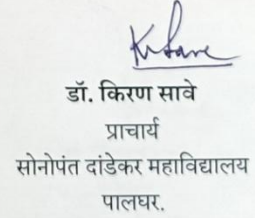 डॉ. किरण सावे
प्राचार्य
सोनोपंत दांडेकर महाविद्यालय
पालघर.